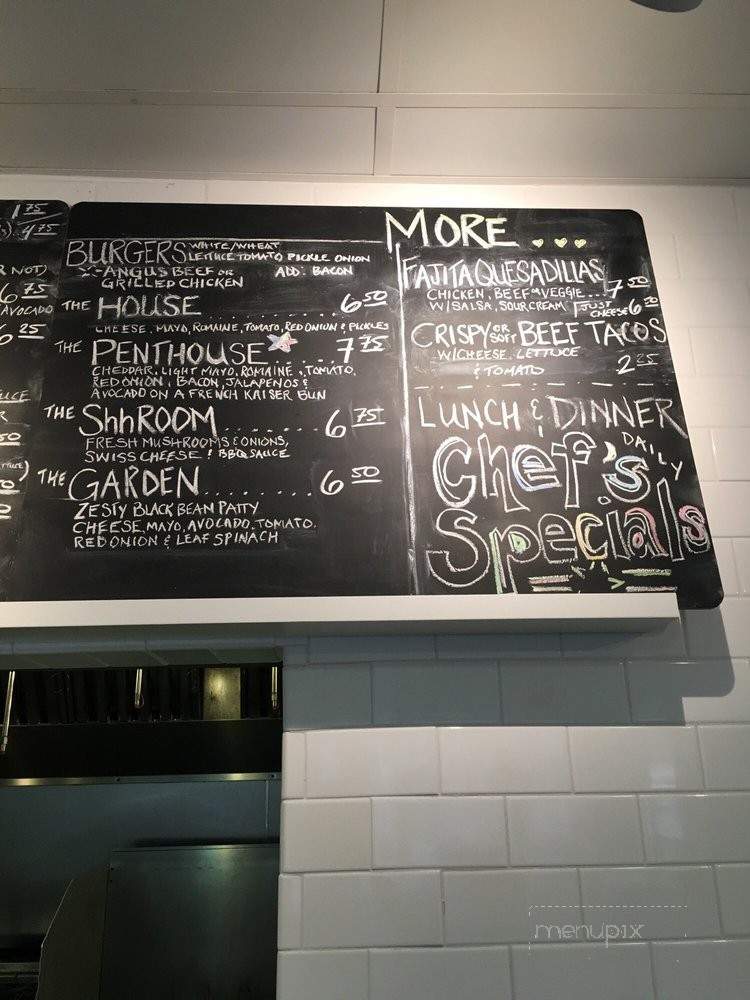 1 75
4 75
R NOT)
6 75
AVOCADO
6 25
BURGERS WHITE/WHEAT
LETTUCE TOMATO PICKLE ONION
ANGUS BEEF OR ADD: BACON
GRILLED CHICKEN
THE HOUSE ........ 6 50
CHEESE, MAYO, ROMAINE, TOMATO, RED ONION & PICKLES
THE PENTHOUSE ..... 7 75
CHEDDAR, LIGHT MAYO, ROMAINE, TOMATO,
RED ONION, BACON, JALAPENOS &
AVOCADO ON A FRENCH KAISER BUN
THE ShhROOM ....... 6 75
FRESH MUSHROOMS & ONIONS,
SWISS CHEESE & BBQ SAUCE
THE GARDEN ....... 6 50
ZESTY BLACK BEAN PATTY
CHEESE, MAYO, AVOCADO, TOMATO,
RED ONION & LEAF SPINACH
MORE...
FAJITA QUESADILLAS
CHICKEN, BEEF OR VEGGIE... 7 50
W/SALSA, SOUR CREAM JUST CHEESE 6 50
CRISPY OR SOFT BEEF TACOS
W/CHEESE, LETTUCE
& TOMATO 2 25
LUNCH & DINNER
DAILY
Chef's
Specials
menupix